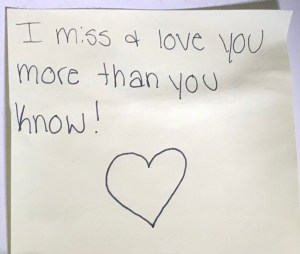 I miss & love you
more than you
know!